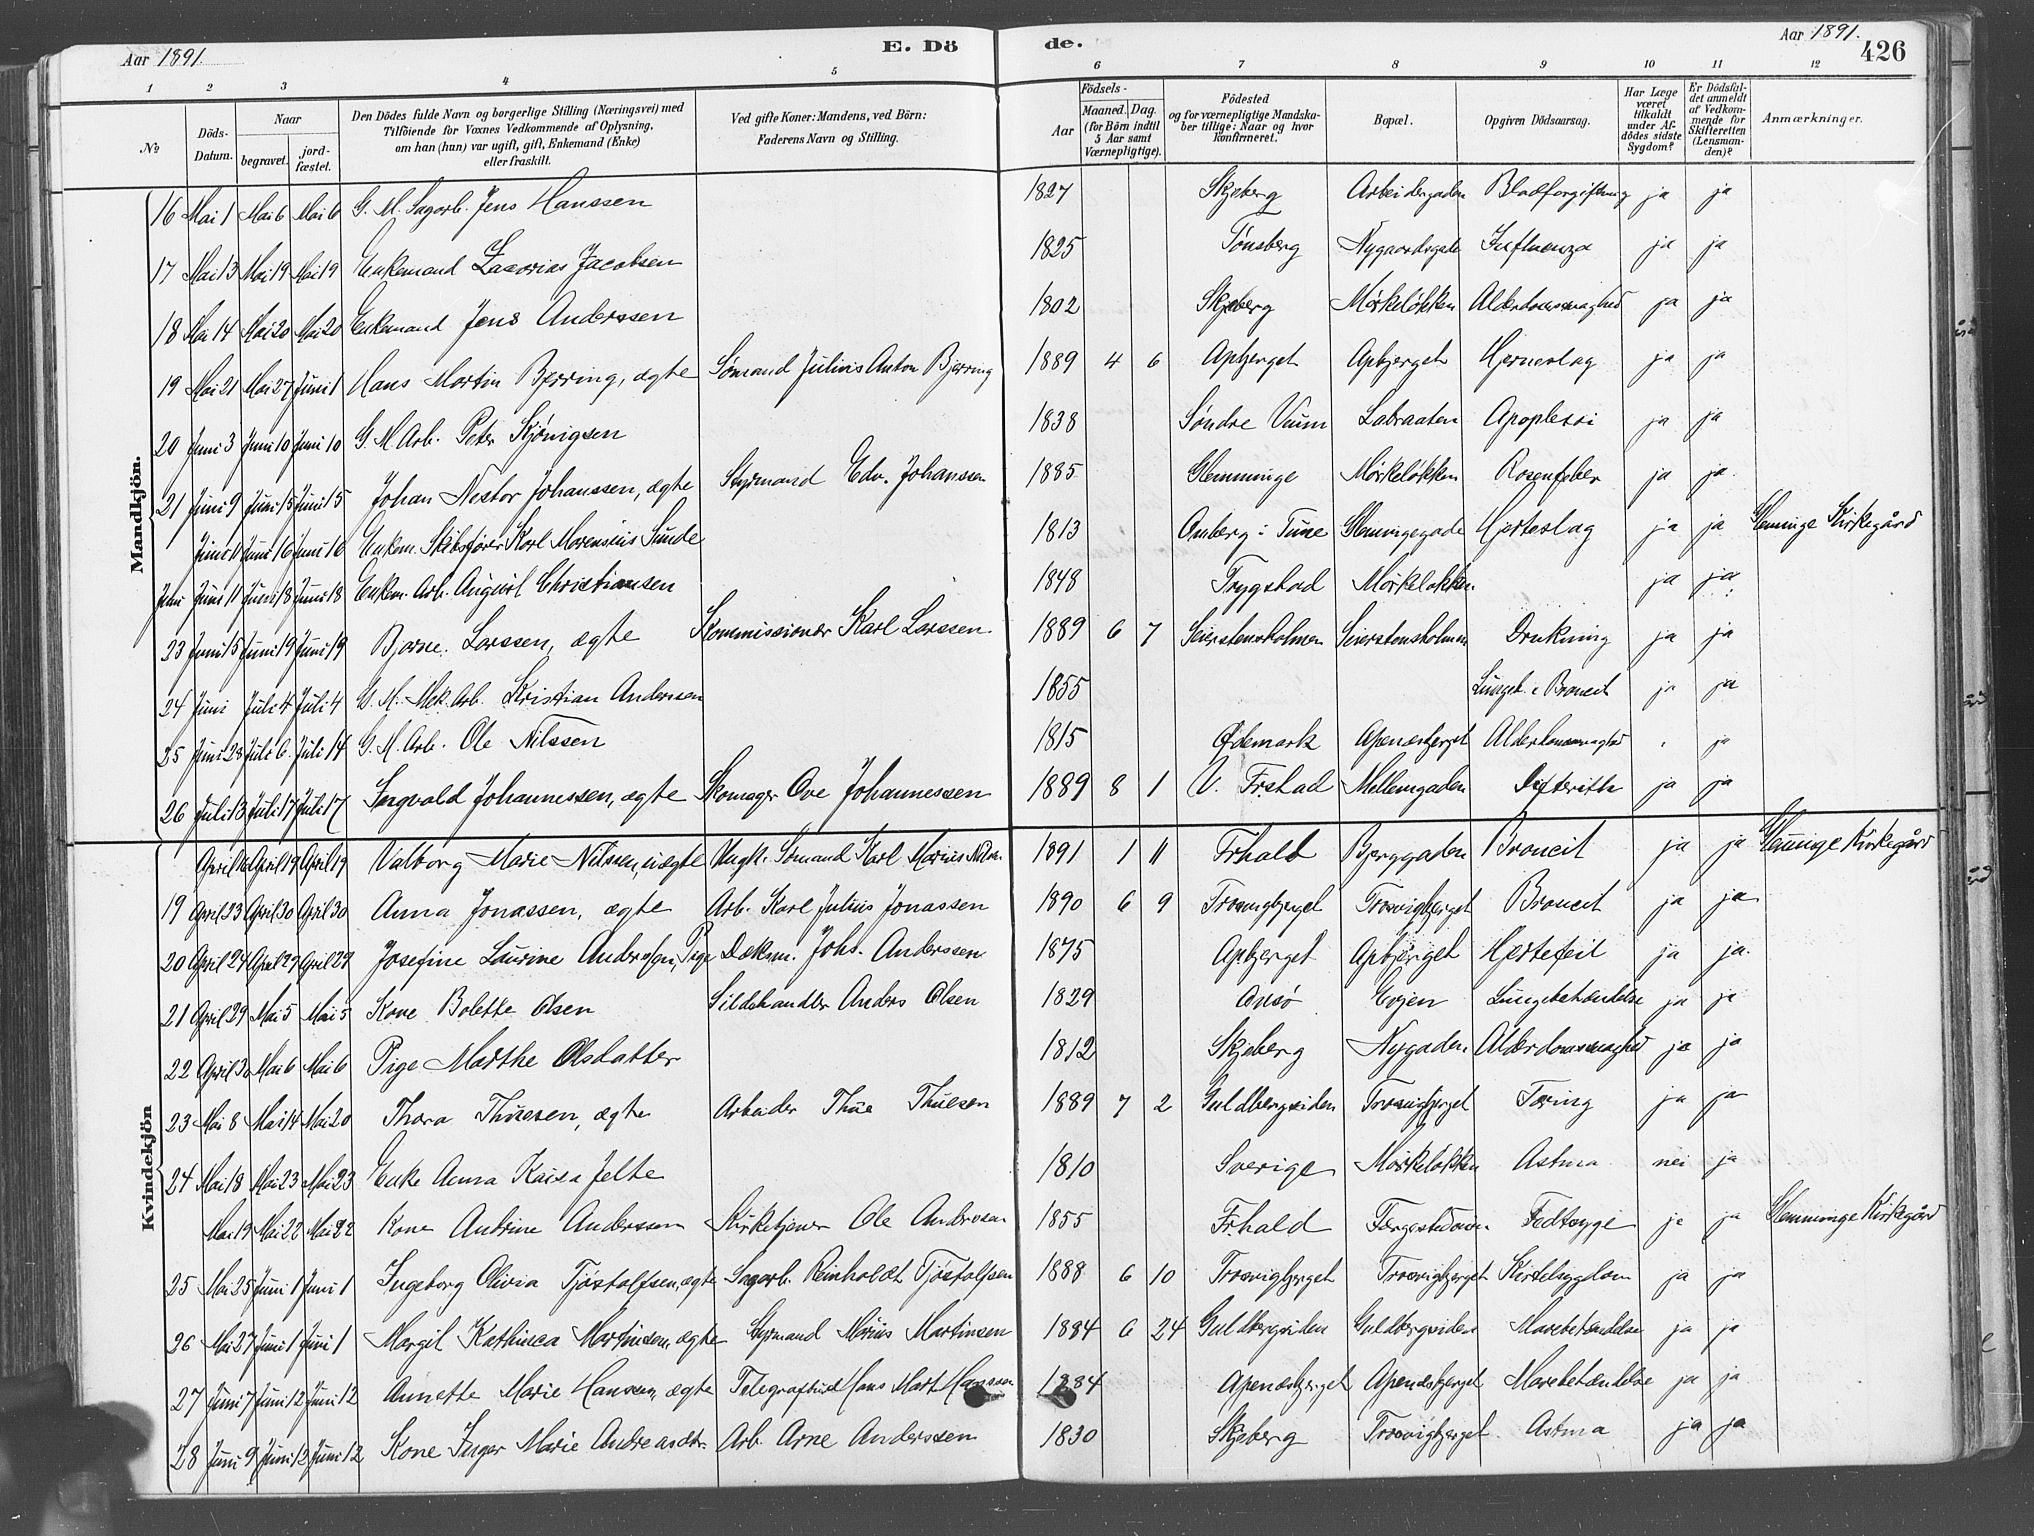 Aar 1891. E. Dö de. Aar 1891. 426
1 2 3 4 5 6 7 8 9 10 11 12
No Döds-Datum. Naar begravet. jord-fæstet. Den Dödes fulde Navn og borgerlige Stilling (Næringsvei) med Tilföiende for Voxnes Vedkommende af Oplysning, om han (hun) var ugift, gift, Enkemand (Enke) eller fraskilt. Ved gifte Koner: Mandens, ved Börn: Faderens Navn og Stilling. Födsels- Aar Maaned. Dag. (for Börn indtil 5 Aar samt Værnepligtige). Födested og for værnepligtige Mandska-ber tillige: Naar og hvor konfirmeret. Bopæl. Opgiven Dödsaarsag. Har Læge været tilkaldt under Af-dödes sidste Sygdom? Er Dödsfal-det anmeldt af Vedkom-mende for Skifteretten (Lensman-den)? Anmærkninger.
Mandkjön.
16 Mai 1 Mai 6 Mai 6 G. M. Sagarb. Jens Hanssen 1827 Skjeberg Arbeidergaden Blodforgiftning ja ja
17 Mai 13 Mai 19 Mai 19 Enkemand Zacarias Jacobsen 1825 Tønsberg Nygaardsgade Influenza ja ja
18 Mai 14 Mai 20 Mai 20 Enkemand Jens Anderssen 1802 Skjeberg Mørkeløkken Alderdomssvaghed ja ja
19 Mai 21 Mai 27 Juni 1 Hans Martin Bjerring, ægte Sømand Julius Anton Bjerring 1889 4 6 Apbjerget Apbjerget Hjerneslag ja ja
20 Juni 3 Juni 10 Juni 10 G M Arb. Peter Skjønigsen 1838 Søndre Labraaten Apoplexi ja ja
21 Juni 9 Juni 15 Juni 15 Johan Nestor Johanssen, ægte Styrmand Edv. Johanssen 1885 Glemminge Mørkeløkken Rosenfeber ja ja
Juni 11 Juni 16 Juni 16 Enkem. Skibsfører Karl Morensius Sunde 1813 Omberg i Tune Glemmingegade Hjerteslag ja ja Glemminge Kirkegård
Juni 11 Juni 18 Juni 18 Enkem. Arb. August Christiansen 1848 Trygstad Mørkeløkken ja ja
23 Juni 15 Juni 19 Juni 19 Bjarne Larssen, ægte Kommissionær Karl Larssen 1889 6 7 Seierstensholmen Seierstensholmen Drukning ja ja
24 Juni Juli 4 Juli 4 G. M. Mek. Arb. Kristian Anderssen 1855 Lunget. & Broncit ja ja
25 Juni 28 Juli 6. Juli 14 G. M. Arb. Ole Nilssen 1815 Ødemark Apenæsbjerget Alderdomssvaghed ja
26 Juli 13 Juli 17 Juli 17 Ingvald Johannessen, ægte Skomager Ove Johannessen 1889 8 1 V. Frstad Mellemgaden Difterith ja ja
Kvindekjön
April 16 April 19 April 19 Valborg Marie Nilssen, uægte Ungk. Sømand Karl Marius Nilsen 1891 1 11 Frhald Bjerggaden Broncit ja ja Glemminge Kirkegård
19 April 23 April 30 April 30 Anna Jonassen, ægte Arb. Karl Julius Jonassen 1890 6 9 Trosvigbjerget Trosvigbjerget Broncit ja ja
20 April 24 April 27 April 27 Josefine Laurine Anderssen, Pige Dæksm. Johs. Anderssen 1875 Apbjerget Apbjerget Hjertefeil ja ja
21 April 29 Mai 5 Mai 5 Kone Bolette Olsen Sildehandler Anders Olsen 1829 Onsø Evjen Lungebetændelse ja ja
22 April 30 Mai 6 Mai 6 Pige Marthe Olsdatter 1812 Skjeberg Nygaden Alderdomssvaghed ja ja
23 Mai 8 Mai 14 Mai 20 Thora Thuesen, ægte Arbeider Thue Thuesen 1889 7 2 Guldbergsiden Trosvigbjerget Tæring ja ja
24 Mai 18 Mai 23 Mai 23 Enke Anna Kaisa Jelte 1810 Sverige Mørkeløkken Astma nei ja
Mai 19 Mai 22 Mai 22 Kone Andrine Anderssen Kirketjener Ole Anderssen 1855 Frhald Færgestedveien Fedtsyge ja ja Glemminge Kirkegård
25 Mai 25 Juni 1 Juni 1 Ingeborg Olivia Tjøstolfsen, ægte Sagarb. Reinholdt Tjøstolfsen 1888 6 10 Trosvigbjerget Trosvigbjerget Kirtelsygdom ja ja
26 Mai 27 Juni 1 Juni 1 Margit Kathinca Martinsen, ægte Styrmand Marius Martinsen 1884 6 24 Guldbergsiden Guldbergsiden Mavebetændelse ja ja
27 Juni 7 Juni 12 Juni 12 Annette Marie Hanssen, ægte Telegrafbud Hans Mart Hanssen 1884 Apenæsbjerget Apenæsbjerget Mavebetændelse ja ja
28 Juni 9 Juni 12 Juni 12 Kone Inger Marie Andreasdtr. Arb. Arne Anderssen 1830 Skjeberg Trosvigbjerget Astma ja ja